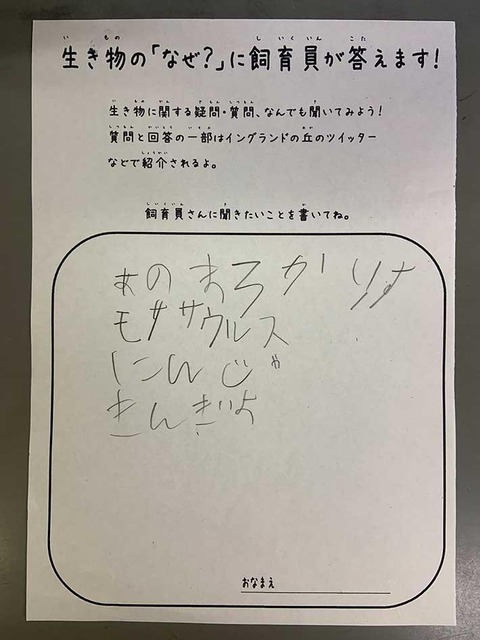 生き物の「なぜ？」に飼育員が答えます！
生き物に関する疑問・質問、なんでも聞いてみよう！
質問と回答の一部はイングランドの丘のツイッター
などで紹介されるよ。
飼育員さんに聞きたいことを書いてね。
あのまろかりす
モササウルス
にんじゃ
きんぎょ
おなまえ